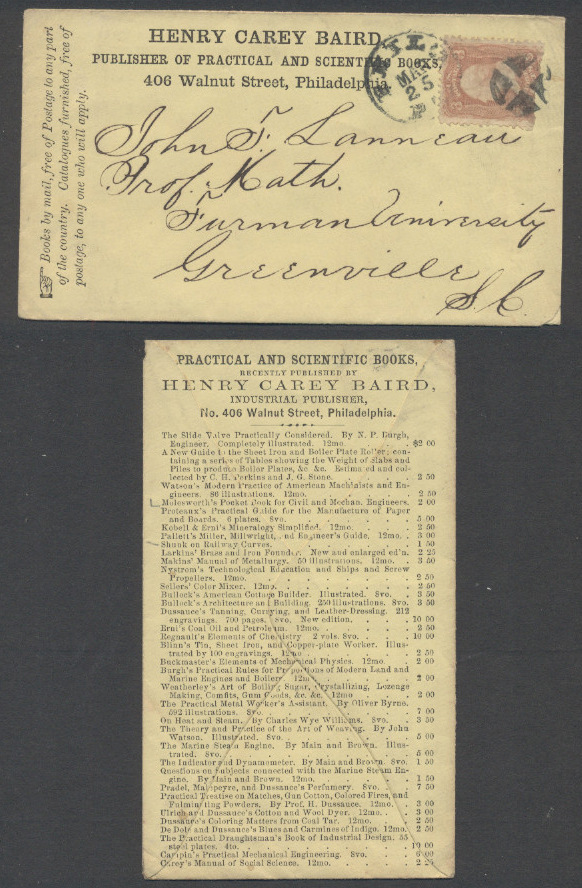 HENRY CAREY BAIRD
PUBLISHER OF PRACTICAL AND SCIENTIFIC BOOKS,
406 Walnut Street, Philadelphia
Books by mail, free of Postage to any part
of the country. Catalogues furnished, free of
postage, to any one who will apply.
MAR
25
John F. Lanneau
Prof. Math.
Furman University
Greenville
S.C.
PRACTICAL AND SCIENTIFIC BOOKS,
RECENTLY PUBLISHED BY
HENRY CAREY BAIRD,
INDUSTRIAL PUBLISHER,
No. 406 Walnut Street, Philadelphia.
The Slide Valve Practically Considered. By N. P. Burgh,
Engineer. Completely illustrated. 12mo. $2 00
A New Guide to the Sheet Iron and Boiler Plate Roller; con-
taining a series of Tables showing the Weight of Slabs and
Piles to produce Boiler Plates, &c. &c. Estimated and col-
lected by C. H. Perkins and J. G. Stone. 2 50
Watson's Modern Practice of American Machinists and En-
gineers. 86 illustrations. 12mo. 2 50
Molesworth's Pocket Book for Civil and Mechan. Engineers. 2 00
Proteaux's Practical Guide for the Manufacture of Paper
and Boards. 6 plates. 8vo. 5 00
Kobell & Erni's Mineralogy Simplified. 12mo. 2 50
Pallett's Miller, Millwright, and Engineer's Guide. 12mo. 3 00
Shunk on Railway Curves. 1 50
Larkins' Brass and Iron Founder. New and enlarged ed'n. 2 25
Makins' Manual of Metallurgy. 50 illustrations. 12mo. 3 50
Nystrom's Technological Education and Ships and Screw
Propellers. 12mo. 2 50
Sellers' Color Mixer. 12mo. 2 50
Bullock's American Cottage Builder. Illustrated. 8vo. 3 50
Bullock's Architecture and Building. 250 illustrations. 8vo. 3 50
Dussauce's Tanning, Currying, and Leather-Dressing. 212
engravings. 700 pages. 8vo. New edition. 10 00
Erni's Coal Oil and Petroleum. 12mo. 2 50
Regnault's Elements of Chemistry 2 vols. 8vo. 10 00
Blinn's Tin, Sheet Iron, and Copper-plate Worker. Illus-
trated by 100 engravings. 12mo 2 50
Buckmaster's Elements of Mechanical Physics. 12mo. 2 00
Burgh's Practical Rules for Proportions of Modern Land and
Marine Engines and Boilers. 12mo. 2 00
Weatherley's Art of Boiling Sugar, Crystallizing, Lozenge
Making, Comfits, Gum Goods, &c. &c. 12mo 2 00
The Practical Metal Worker's Assistant. By Oliver Byrne.
592 illustrations. 8vo. 7 00
On Heat and Steam. By Charles Wye Williams. 8vo. 3 50
The Theory and Practice of the Art of Weaving. By John
Watson. Illustrated. 8vo. 5 00
The Marine Steam Engine. By Main and Brown. Illus-
trated. 8vo. 5 00
The Indicator and Dynamometer. By Main and Brown. 8vo. 1 50
Questions on Subjects connected with the Marine Steam En-
gine. By Main and Brown. 12mo. 1 50
Pradel, Malepeyre, and Dussauce's Perfumery. 8vo. 7 50
Practical Treatise on Matches, Gun Cotton, Colored Fires, and
Fulminating Powders. By Prof. H. Dussauce. 12mo. 3 00
Ulrich and Dussauce's Cotton and Wool Dyer. 12mo. 3 00
Dussauce's Coloring Matters from Coal Tar. 12mo. 2 50
De Dole and Dussauce's Blues and Carmines of Indigo. 12mo. 2 50
The Practical Draughtsman's Book of Industrial Design. 55
steel plates. 4to. 10 00
Campin's Practical Mechanical Engineering. 8vo. 6 00
Carey's Manual of Social Science. 12mo. 2 25